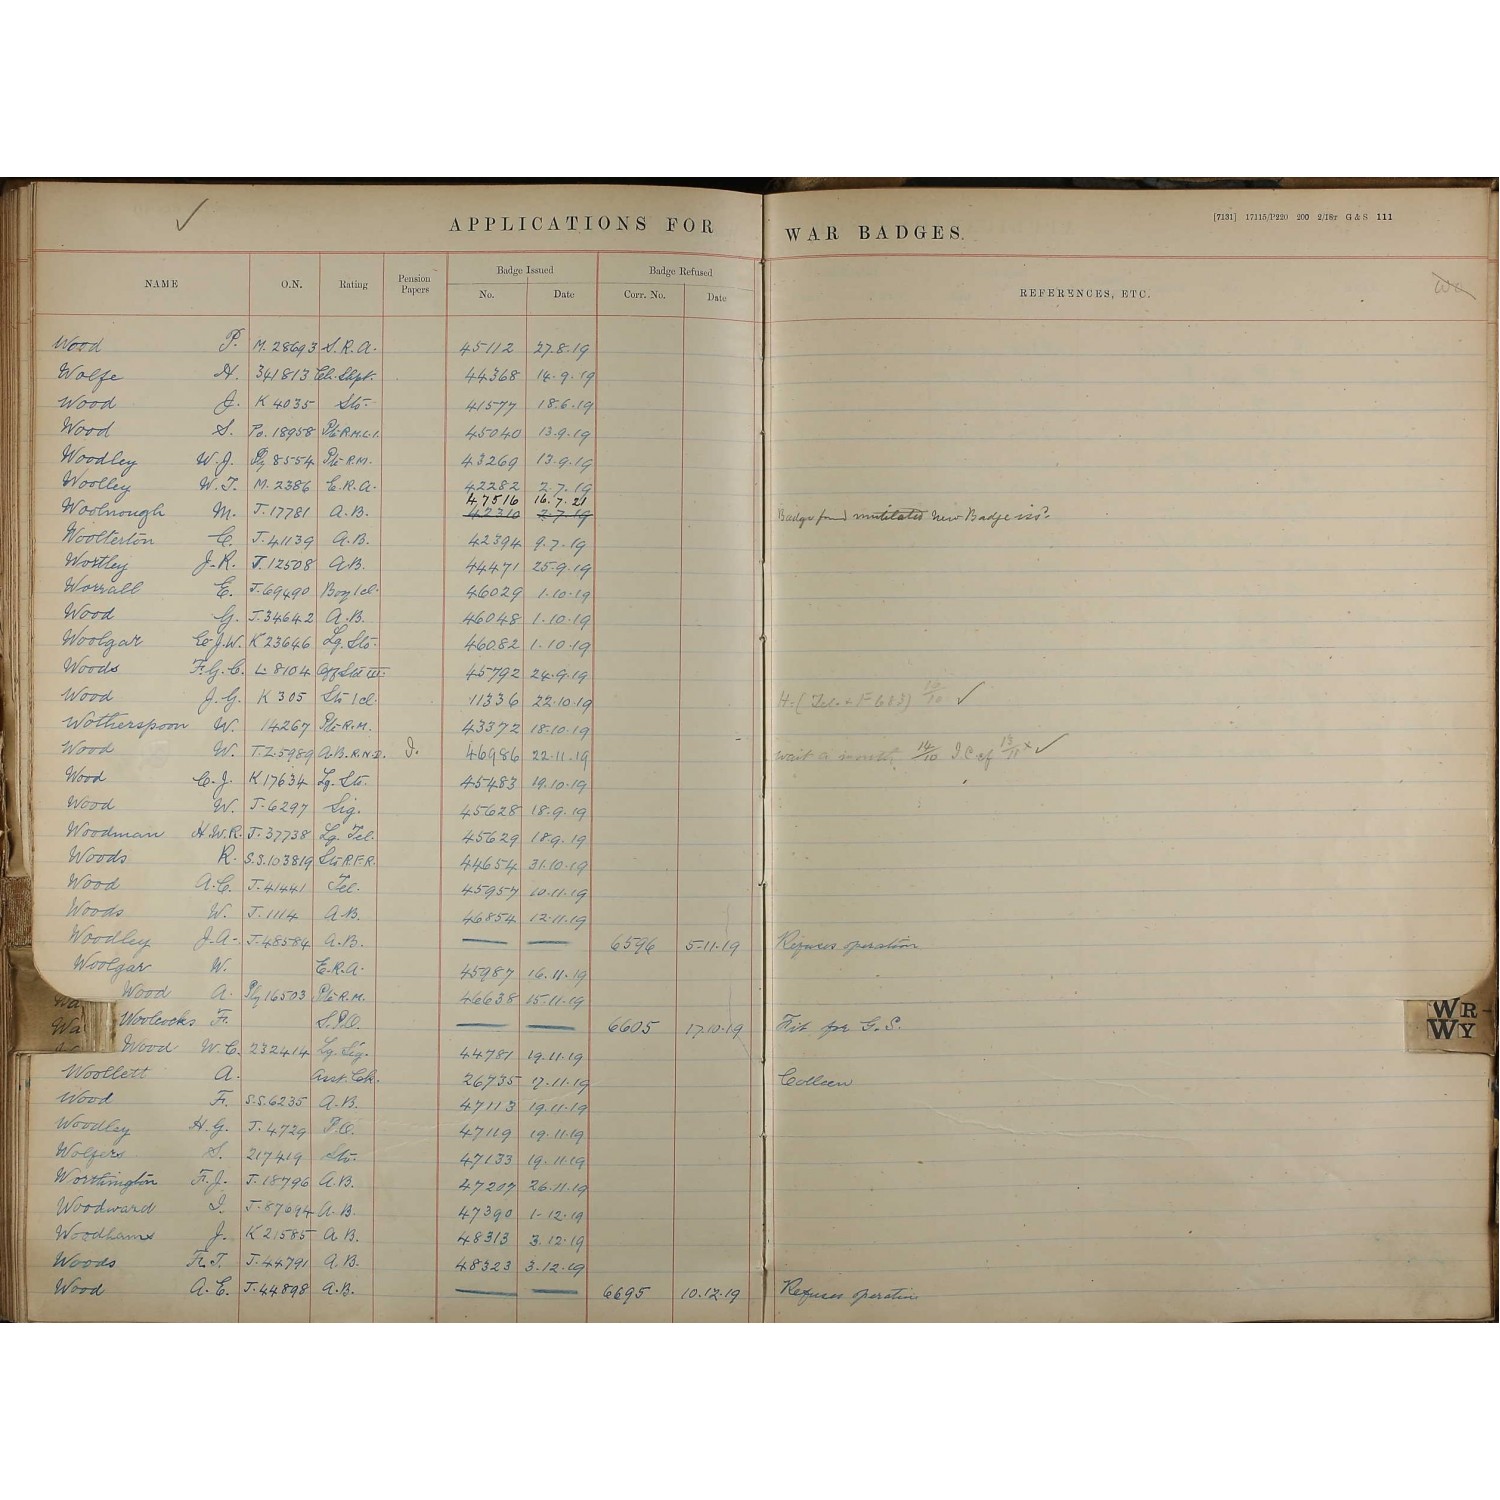 APPLICATIONS FOR WAR BADGES.
[7131] 17115/P220 200 2/18r G & S 111
NAME O.N. Rating Pension Papers Badge Issued No. Date Badge Refused Corr. No. Date REFERENCES, ETC.
Wood P. M. 28693 S.R.A. 45112 27.8.19
Wolfe H. 341813 Ch. Shpt. 44368 14.9.19
Wood J. K 4035 Sto. 41577 18.6.19
Wood S. Po. 18958 Pte R.M.L.I. 45040 13.9.19
Woodley W.J. Ply 8554 Pte R.M. 43269 13.9.19
Woolley W.T. M. 2386 E.R.A. 42282 2.7.19
47516 16.7.21
Woolnough M. J. 17781 A.B. 42310 2.7.19 Badge found mutilated New Badge issd.
Woolterton C. J. 41139 A.B. 42394 9.7.19
Wortley J.R. J. 12508 A.B. 44471 25.9.19
Worrall E. J. 69490 Boy 1 cl. 46029 1.10.19
Wood G. J. 34642 A.B. 46048 1.10.19
Woolgar J.W. K 23646 Lg. Sto. 46082 1.10.19
Woods F.G.C. L. 8104 Off Std III. 45792 24.9.19
Wood J.G. K 305 Sto 1 cl. 11336 22.10.19
Wotherspoon W. 14267 Pte R.M. 43372 18.10.19
Wood W. T.Z. 5989 A.B. R.N.D. I. 46986 22.11.19 wait a month 14/10
Wood C.J. K 17634 Lg. Sto. 45483 19.10.19
Wood W. J. 6297 Sig. 45628 18.9.19
Woodman H.W.R. J. 37738 Lg. Tel. 45629 18.9.19
Woods R. S.S. 103819 Sto R.F.R. 44654 31.10.19
Wood A.C. J. 41441 Tel. 45957 10.11.19
Woods W. J. 1114 A.B. 46854 12.11.19
Woodley J.A. J. 48584 A.B. — — 6596 5.11.19 Refuses operation
Woolgar W. E.R.A. 45987 16.11.19
Wood A. Ply 16503 Pte R.M. 46638 15.11.19
Woolcocks F. S.P.O. — — 6605 17.10.19 Fit for G.S.
WR-
WY
Wood W.C. 232414 Lg. Sig. 44781 19.11.19
Woollett A. Asst. Clk. 26735 17.11.19 Colleen
Wood F. S.S. 6235 A.B. 47113 19.11.19
Woodley H.G. J. 4729 P.O. 47119 19.11.19
Wolfers S. 217419 Sto. 47133 19.11.19
Worthington F.J. J. 18796 A.B. 47207 26.11.19
Woodward I. J. 87694 A.B. 47390 1.12.19
Woodhams J. K 21585 A.B. 48313 3.12.19
Woods F.T. J. 44791 A.B. 48323 3.12.19
Wood A.E. J. 44898 A.B. — — 6695 10.12.19 Refuses operation